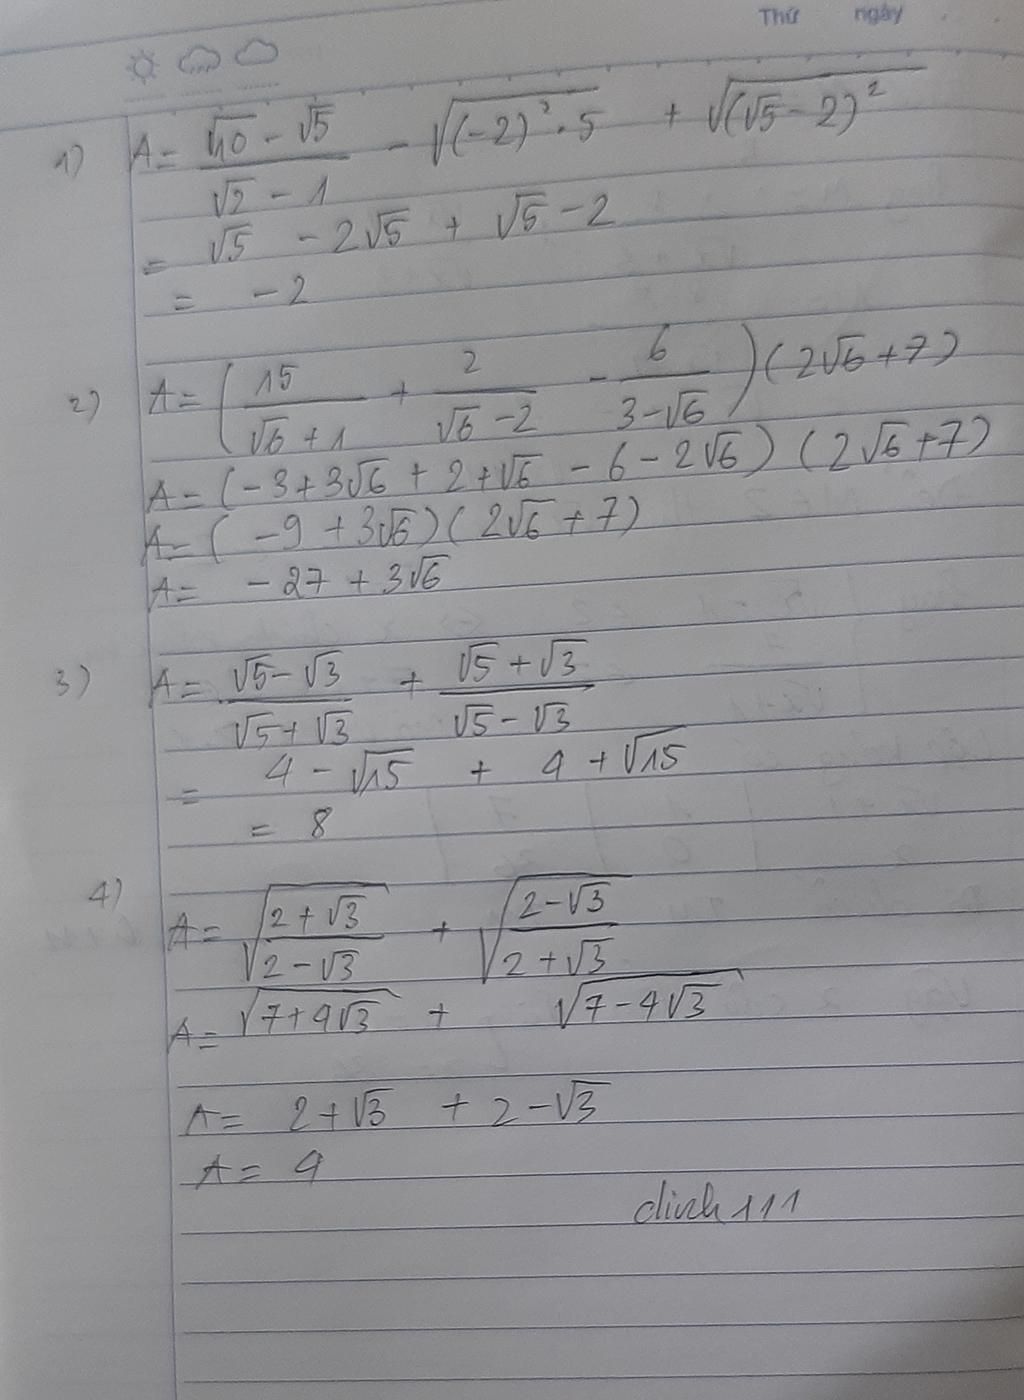 Thứ ngày
1) A = (√10 - √5)/(√2 - 1) - √((-2)² . 5) + √((√5 - 2)²)
= √5 - 2√5 + √5 - 2
= -2
2) A = (15/(√6 + 1) + 2/(√6 - 2) - 6/(3 - √6)) (2√6 + 7)
A = (-3 + 3√6 + 2 + √6 - 6 - 2√6) (2√6 + 7)
A = (-9 + 3√6) (2√6 + 7)
A = -27 + 3√6
3) A = (√5 - √3)/(√5 + √3) + (√5 + √3)/(√5 - √3)
= 4 - √15 + 4 + √15
= 8
4) A = √((2 + √3)/(2 - √3)) + √((2 - √3)/(2 + √3))
A = √(7 + 4√3) + √(7 - 4√3)
A = 2 + √3 + 2 - √3
A = 4
dinh 111